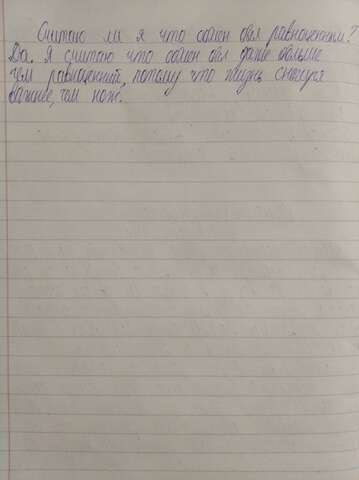 Считаю ли я что обмен был равноценным?
Да. Я считаю что обмен был даже больше
чем равноценный, потому что жизнь снегиря
важнее, чем нож.